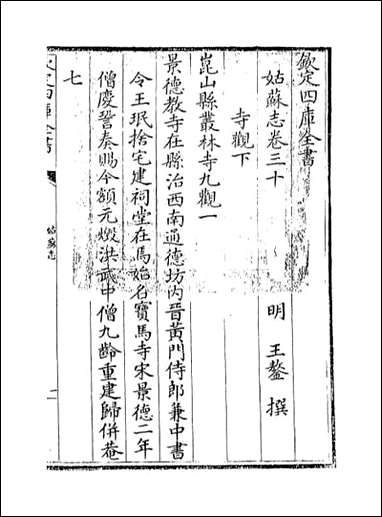 欽定四庫全書
姑蘇志卷三十
明 王鏊 撰
寺觀下
崑山縣叢林寺九觀一
景德教寺在縣治西南通德坊内晉黃門侍郎兼中書
令王珉捨宅建祠堂在馬始名寳馬寺宋景德二年
僧慶誾奏賜今額元燬洪武中僧九齡重建歸併菴
七
欽定四庫全書
姑蘇志
一